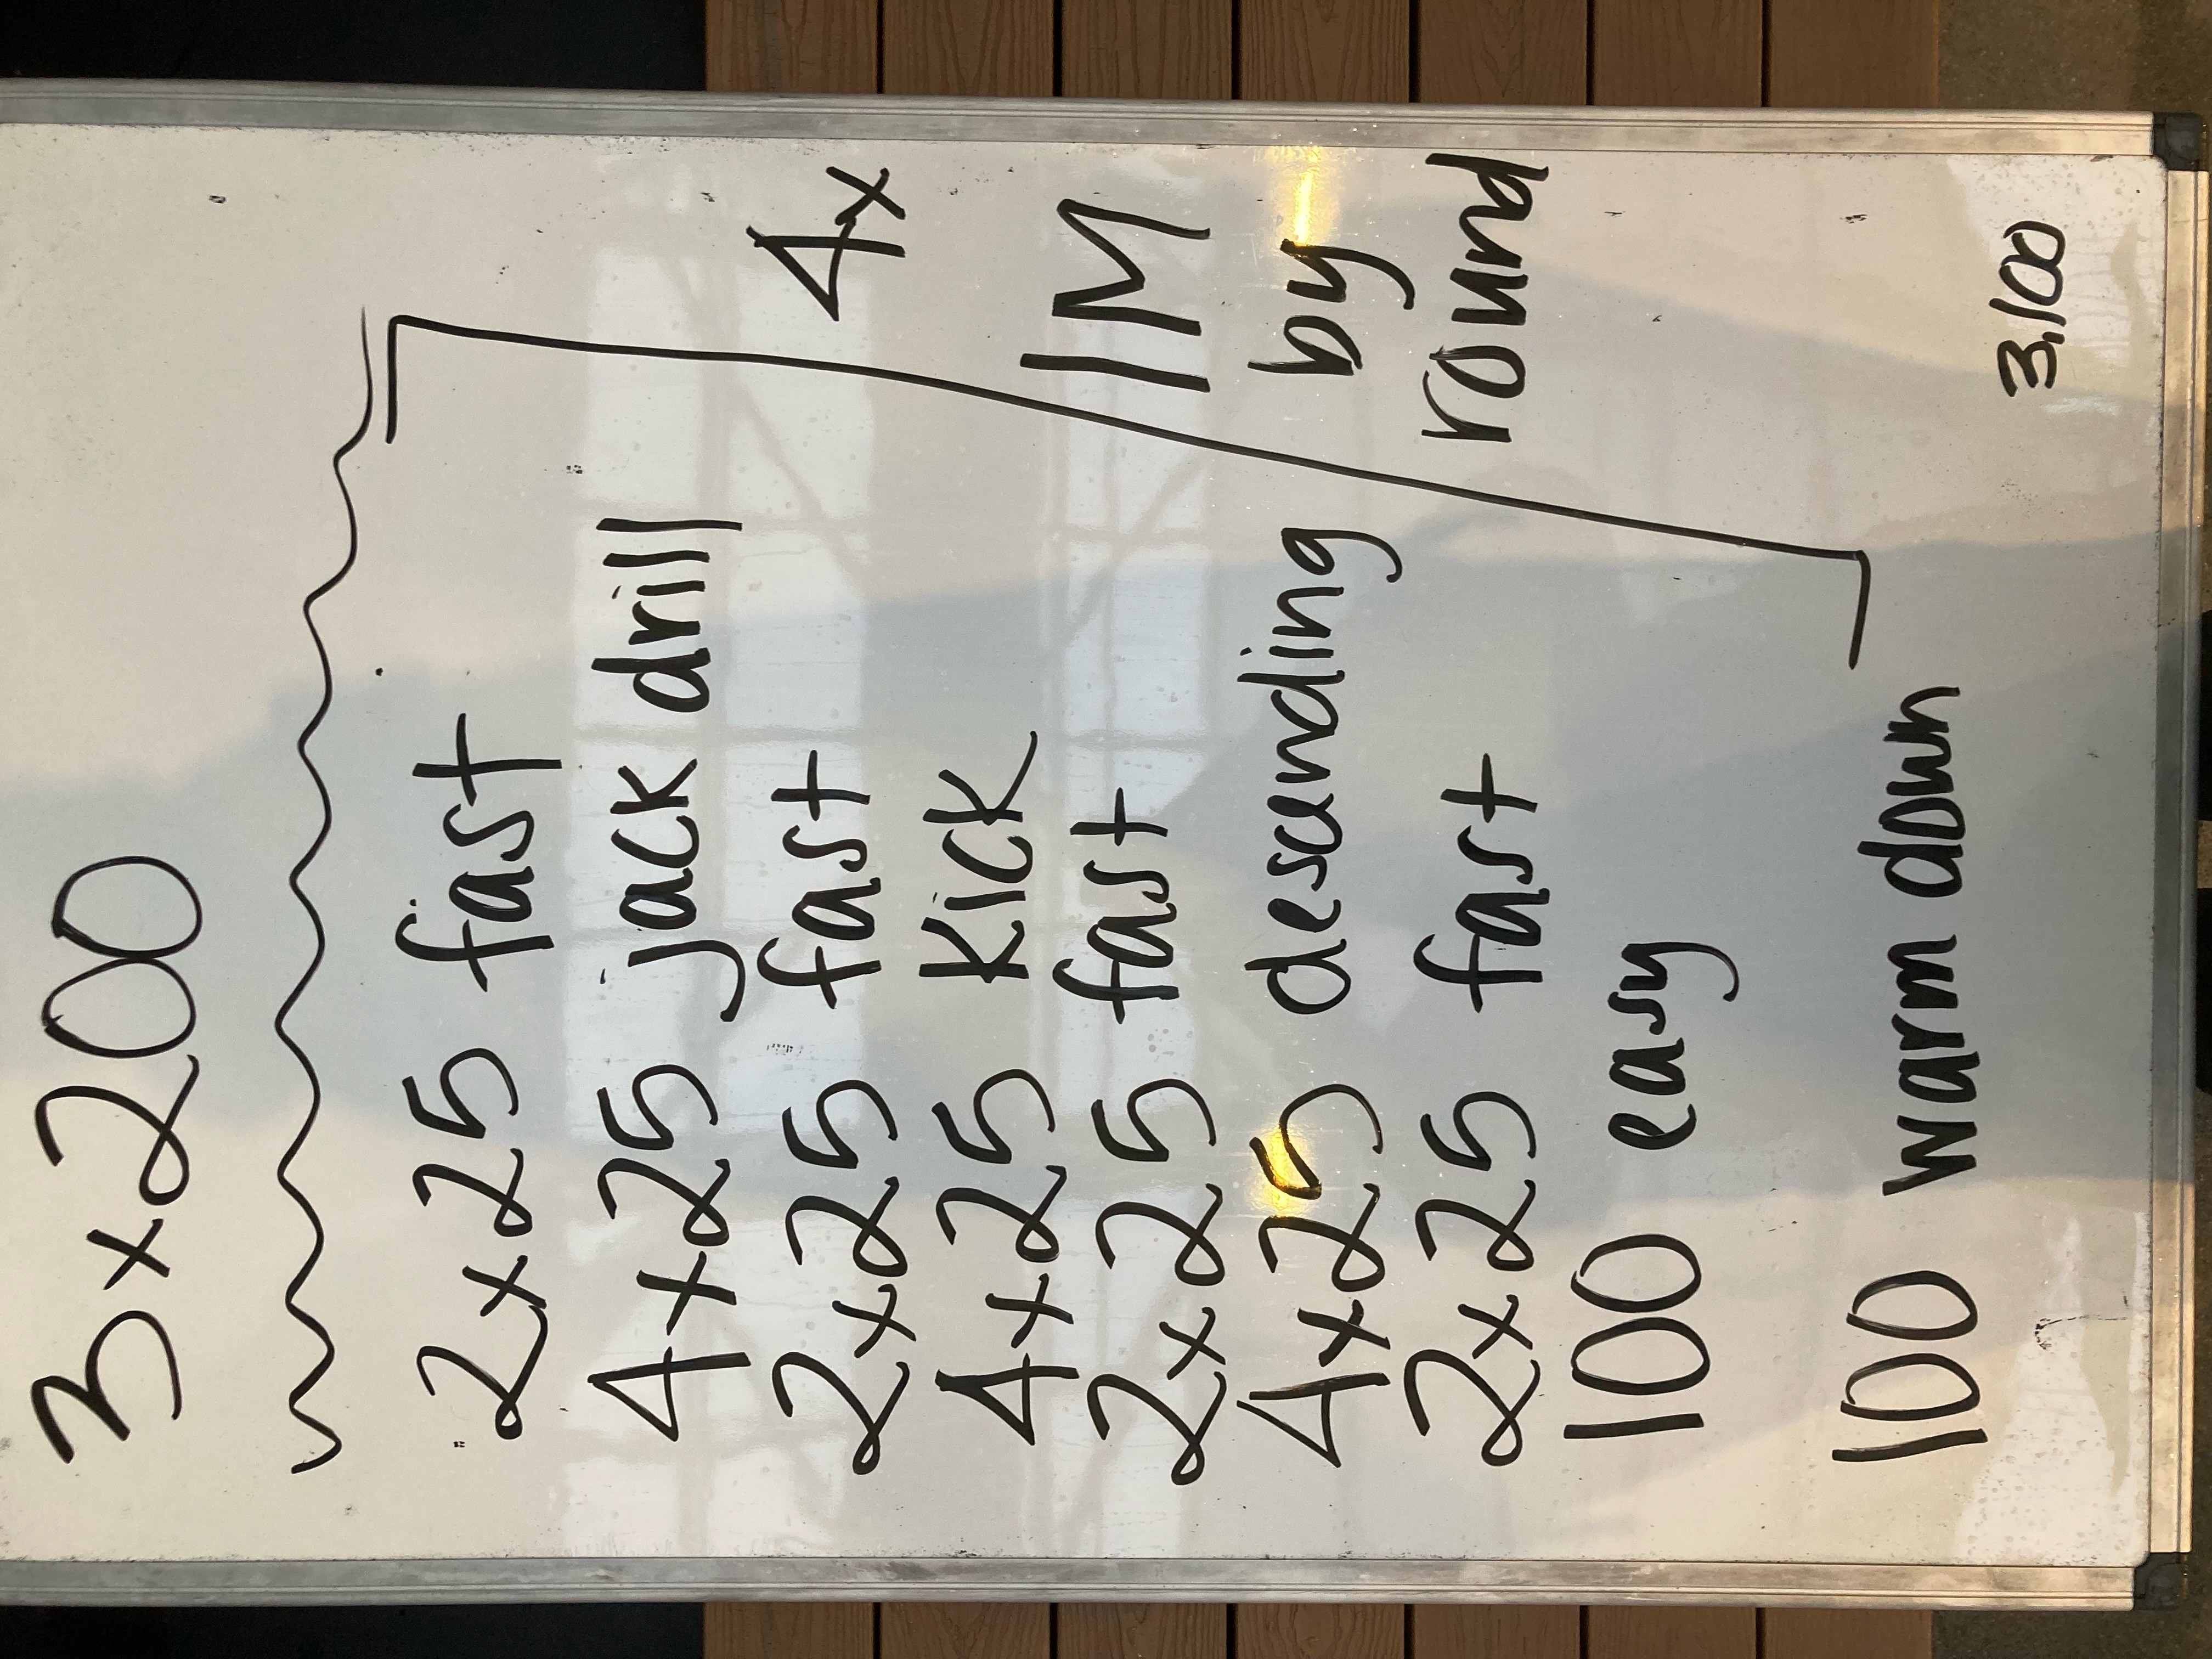 3x200
2x25 fast
4x25 jack drill
2x25 fast
4x25 kick
2x25 fast
4x25 descending
2x25 fast
100 easy
4x
IM
by
round
100 warm down
3,100